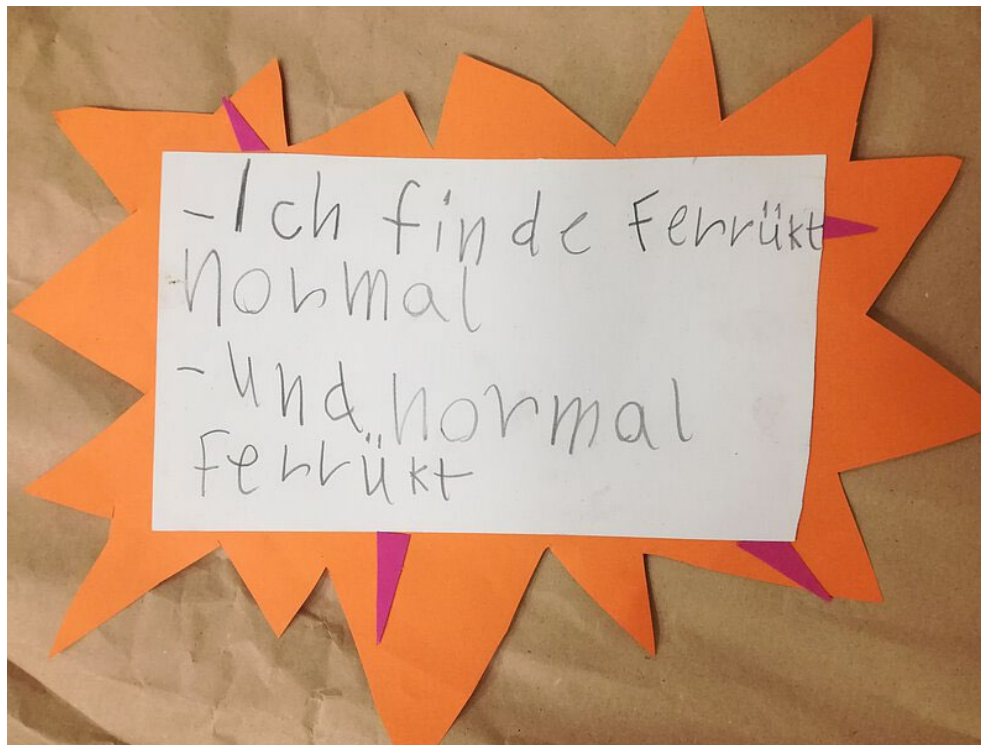 - Ich finde Ferrükt
normal
- und normal
Ferrükt